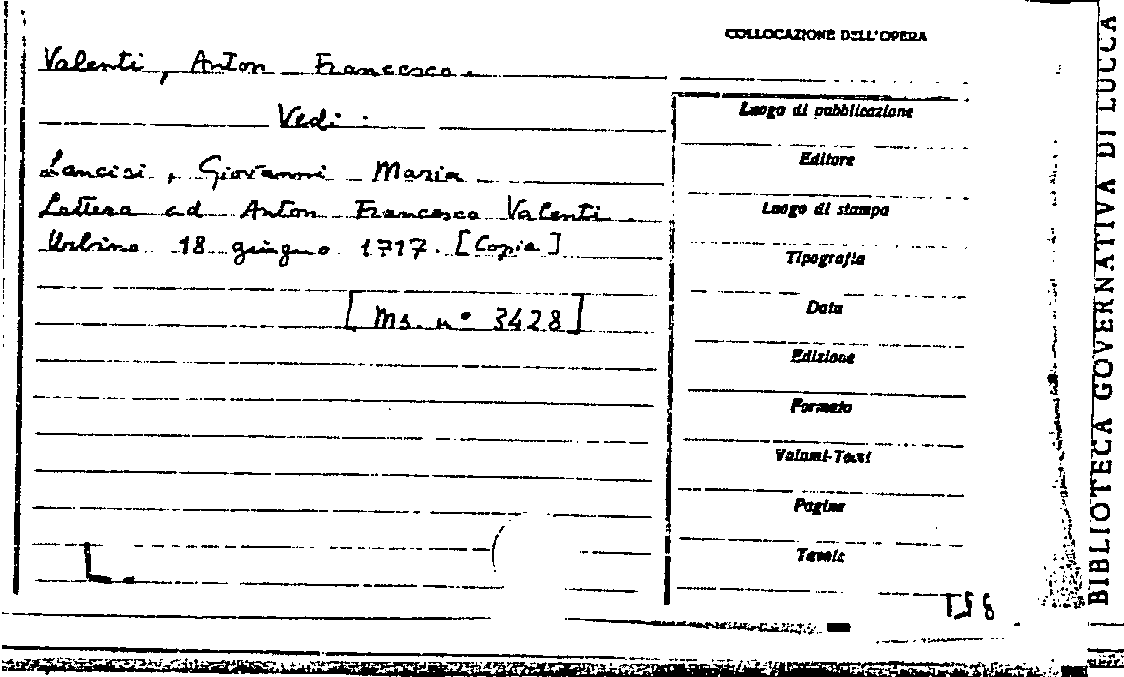 COLLOCAZIONE DELL'OPERA
Valenti, Anton Francesco.
Vedi:
Lancisi, Giovanni Maria
Lettera ad Anton Francesco Valenti.
Urbino 18 giugno 1717. [Copia]
[Ms. n° 3428]
Luogo di pubblicazione
Editore
Luogo di stampa
Tipografia
Data
Edizione
Formato
Volumi-Tomi
Pagine
Tavole
BIBLIOTECA GOVERNATIVA DI LUCCA